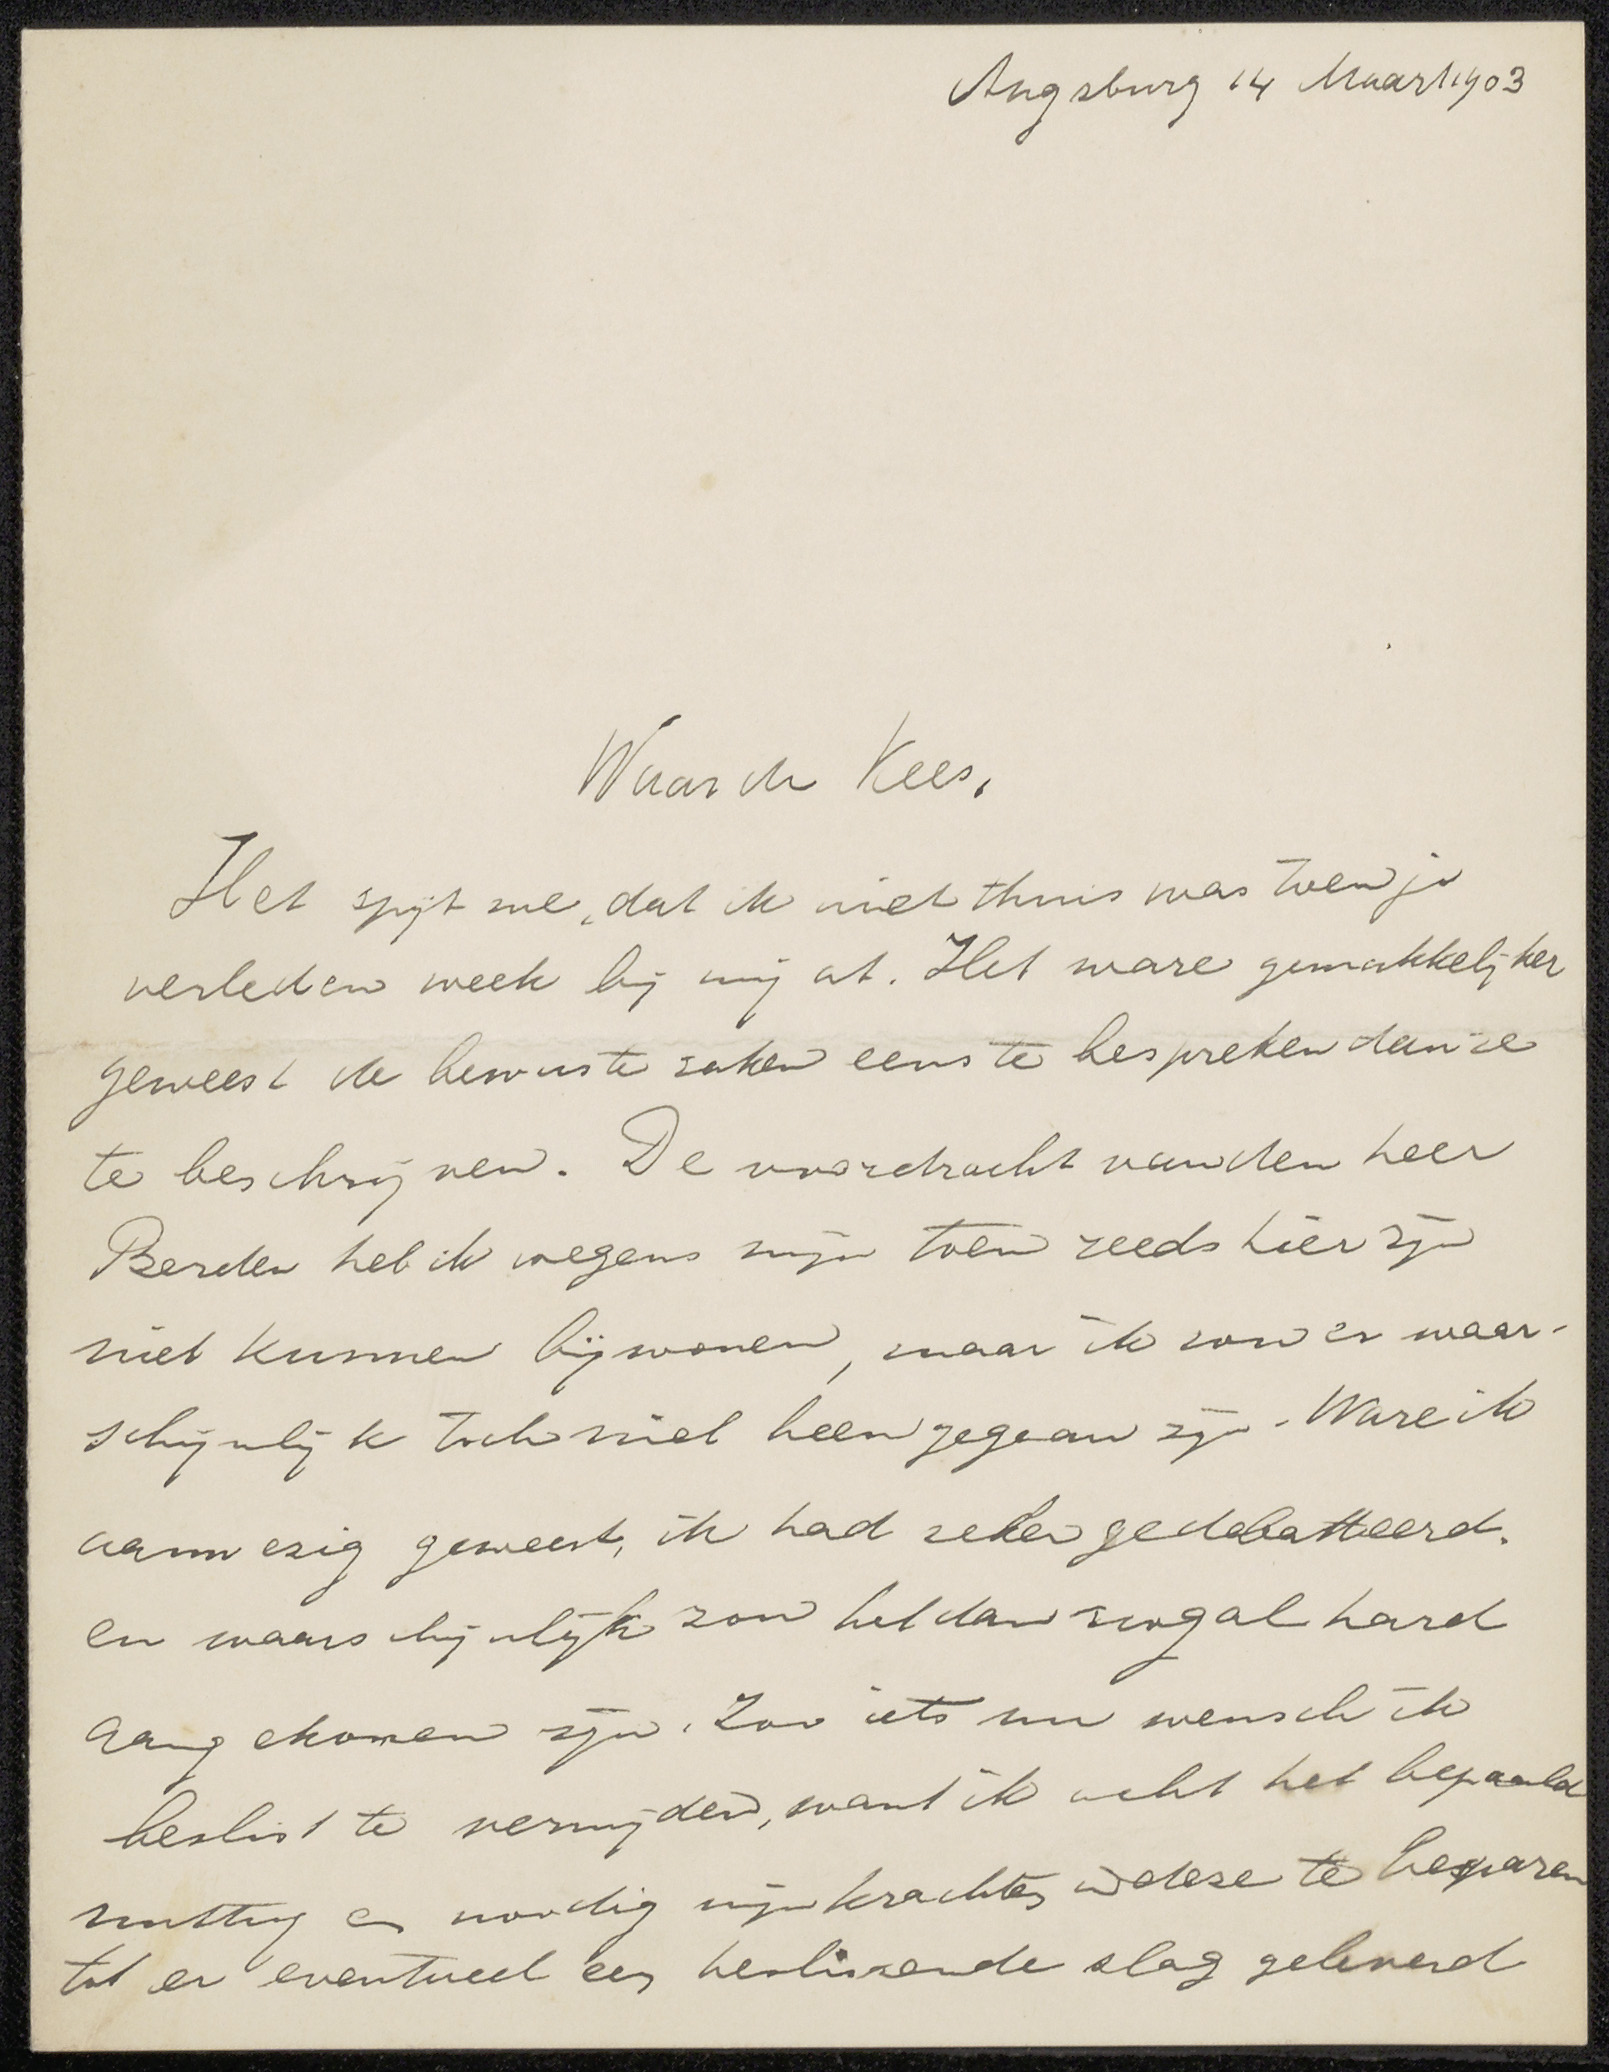 Augsburg 14 Maart 1903
Waarde Kees,
Het spijt me, dat ik niet thuis was toen je
verleden week bij mij at. Het ware gemakkelijker
geweest de bewuste zaken eens te bespreken dan ze
te beschrijven. De voordracht van den heer
Berden heb ik wegens mijn toen reeds hier zijn
niet kunnen bijwonen, maar ik zou er waar-
schijnlijk toch niet heen gegaan zijn. Ware ik
aanwezig geweest, ik had zeker gedebatteerd.
en waarschijnlijk zou het dan nogal hard
aangekomen zijn. Zoo iets nu wensch ik
beslist te vermijden, want ik acht het bepaald
nuttig en noodig mijn krachten in deze te besparen
tot er eventueel een beslissende slag geleverd